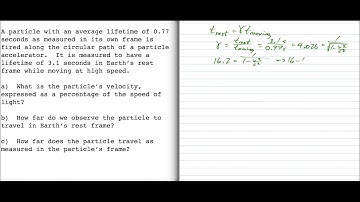 A particle with an average lifetime of 0.77
seconds as measured in its own frame is
fired along the circular path of a particle
accelerator. It is measured to have a
lifetime of 3.1 seconds in Earth's rest
frame while moving at high speed.
a) What is the particle's velocity,
expressed as a percentage of the speed of
light?
b) How far do we observe the particle to
travel in Earth's rest frame?
c) How far does the particle travel as
measured in the particle's frame?
t rest = γ t moving
γ = t rest / t moving = 3.1s / 0.77s = 4.026 = 1 / √(1 - v²/c²)
16.2 = 1 / (1 - v²/c²) → 16 -